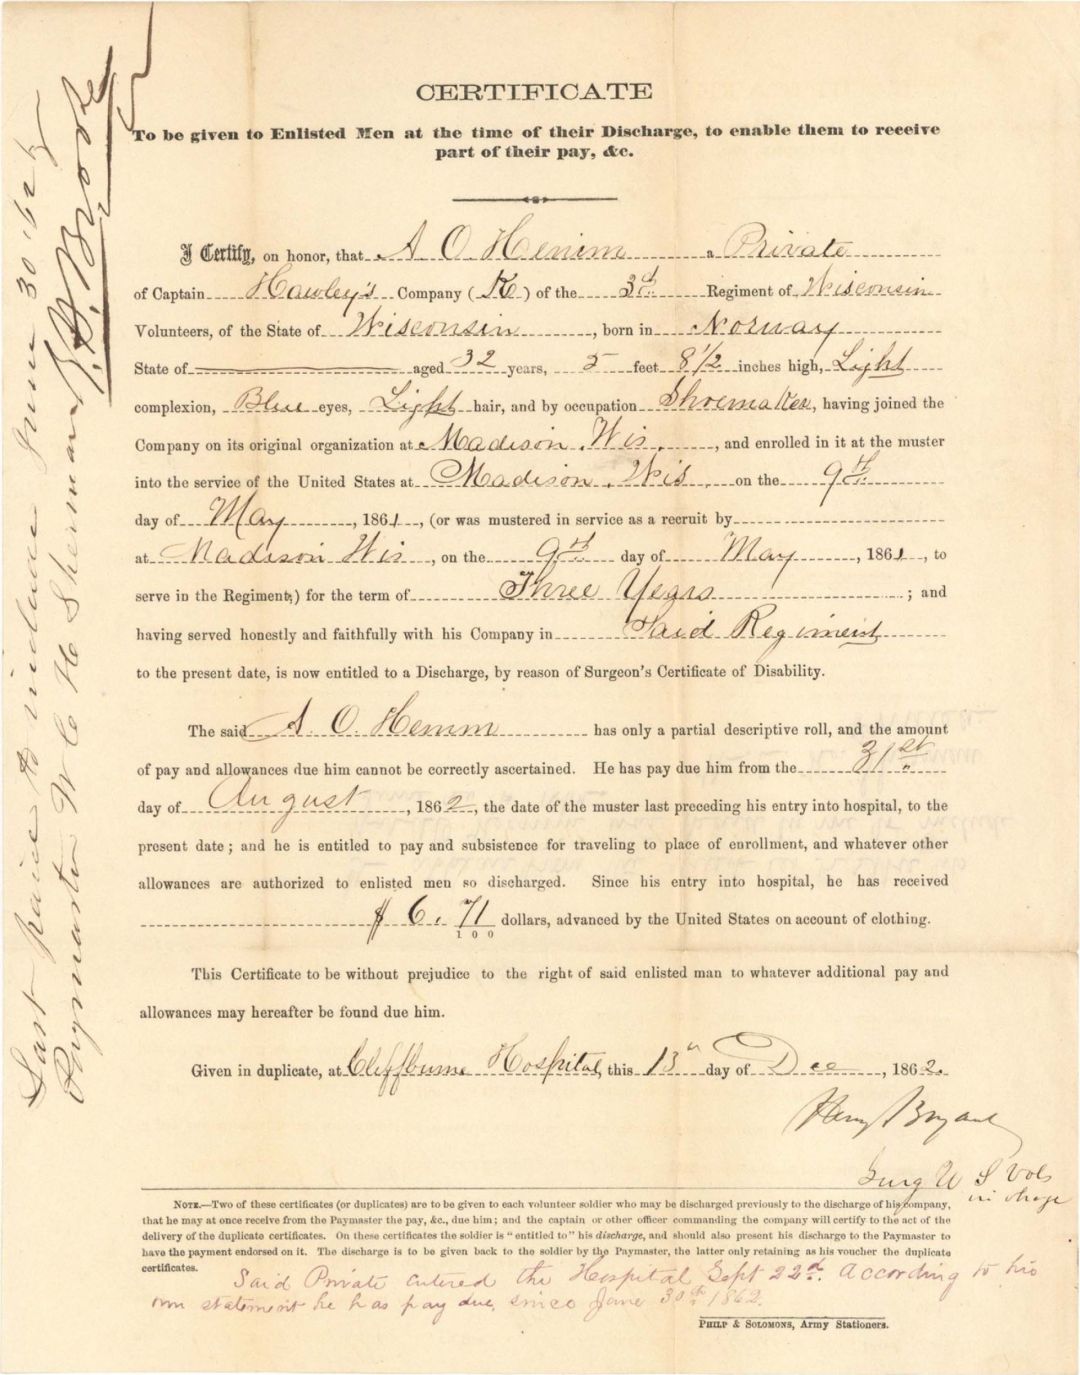 CERTIFICATE
To be given to Enlisted Men at the time of their Discharge, to enable them to receive
part of their pay, &c.
I Certify, on honor, that A. O. Henim a Private
of Captain Hawley's Company ( K ) of the 3d Regiment of Wisconsin
Volunteers, of the State of Wisconsin, born in Norway
State of aged 32 years, 5 feet 8 1/2 inches high, Light
complexion, Blue eyes, Light hair, and by occupation Shoemaker, having joined the
Company on its original organization at Madison, Wis., and enrolled in it at the muster
into the service of the United States at Madison, Wis on the 9th
day of May, 1861, (or was mustered in service as a recruit by
at Madison Wis, on the 9th day of May, 1861, to
serve in the Regiment;) for the term of Three Years; and
having served honestly and faithfully with his Company in Said Regiment
to the present date, is now entitled to a Discharge, by reason of Surgeon's Certificate of Disability.
The said A. O. Hemm has only a partial descriptive roll, and the amount
of pay and allowances due him cannot be correctly ascertained. He has pay due him from the 31st
day of August, 1862, the date of the muster last preceding his entry into hospital, to the
present date; and he is entitled to pay and subsistence for traveling to place of enrollment, and whatever other
allowances are authorized to enlisted men so discharged. Since his entry into hospital, he has received
$ 6. 71/100 dollars, advanced by the United States on account of clothing.
This Certificate to be without prejudice to the right of said enlisted man to whatever additional pay and
allowances may hereafter be found due him.
Given in duplicate, at Cliffburne Hospital, this 13th day of Dec, 1862.
Henry Bryant
Surg U S Vols
in charge
NOTE.—Two of these certificates (or duplicates) are to be given to each volunteer soldier who may be discharged previously to the discharge of his company,
that he may at once receive from the Paymaster the pay, &c., due him; and the captain or other officer commanding the company will certify to the act of the
delivery of the duplicate certificates. On these certificates the soldier is "entitled to" his discharge, and should also present his discharge to the Paymaster to
have the payment endorsed on it. The discharge is to be given back to the soldier by the Paymaster, the latter only retaining as his voucher the duplicate
certificates.
Said Private entered the Hospital Sept 22d. According to his
own statement he has pay due, since June 30th 1862.
PHILP & SOLOMONS, Army Stationers.
Last paid to include June 30 '62 by
Paymaster W. C. H. Sherman